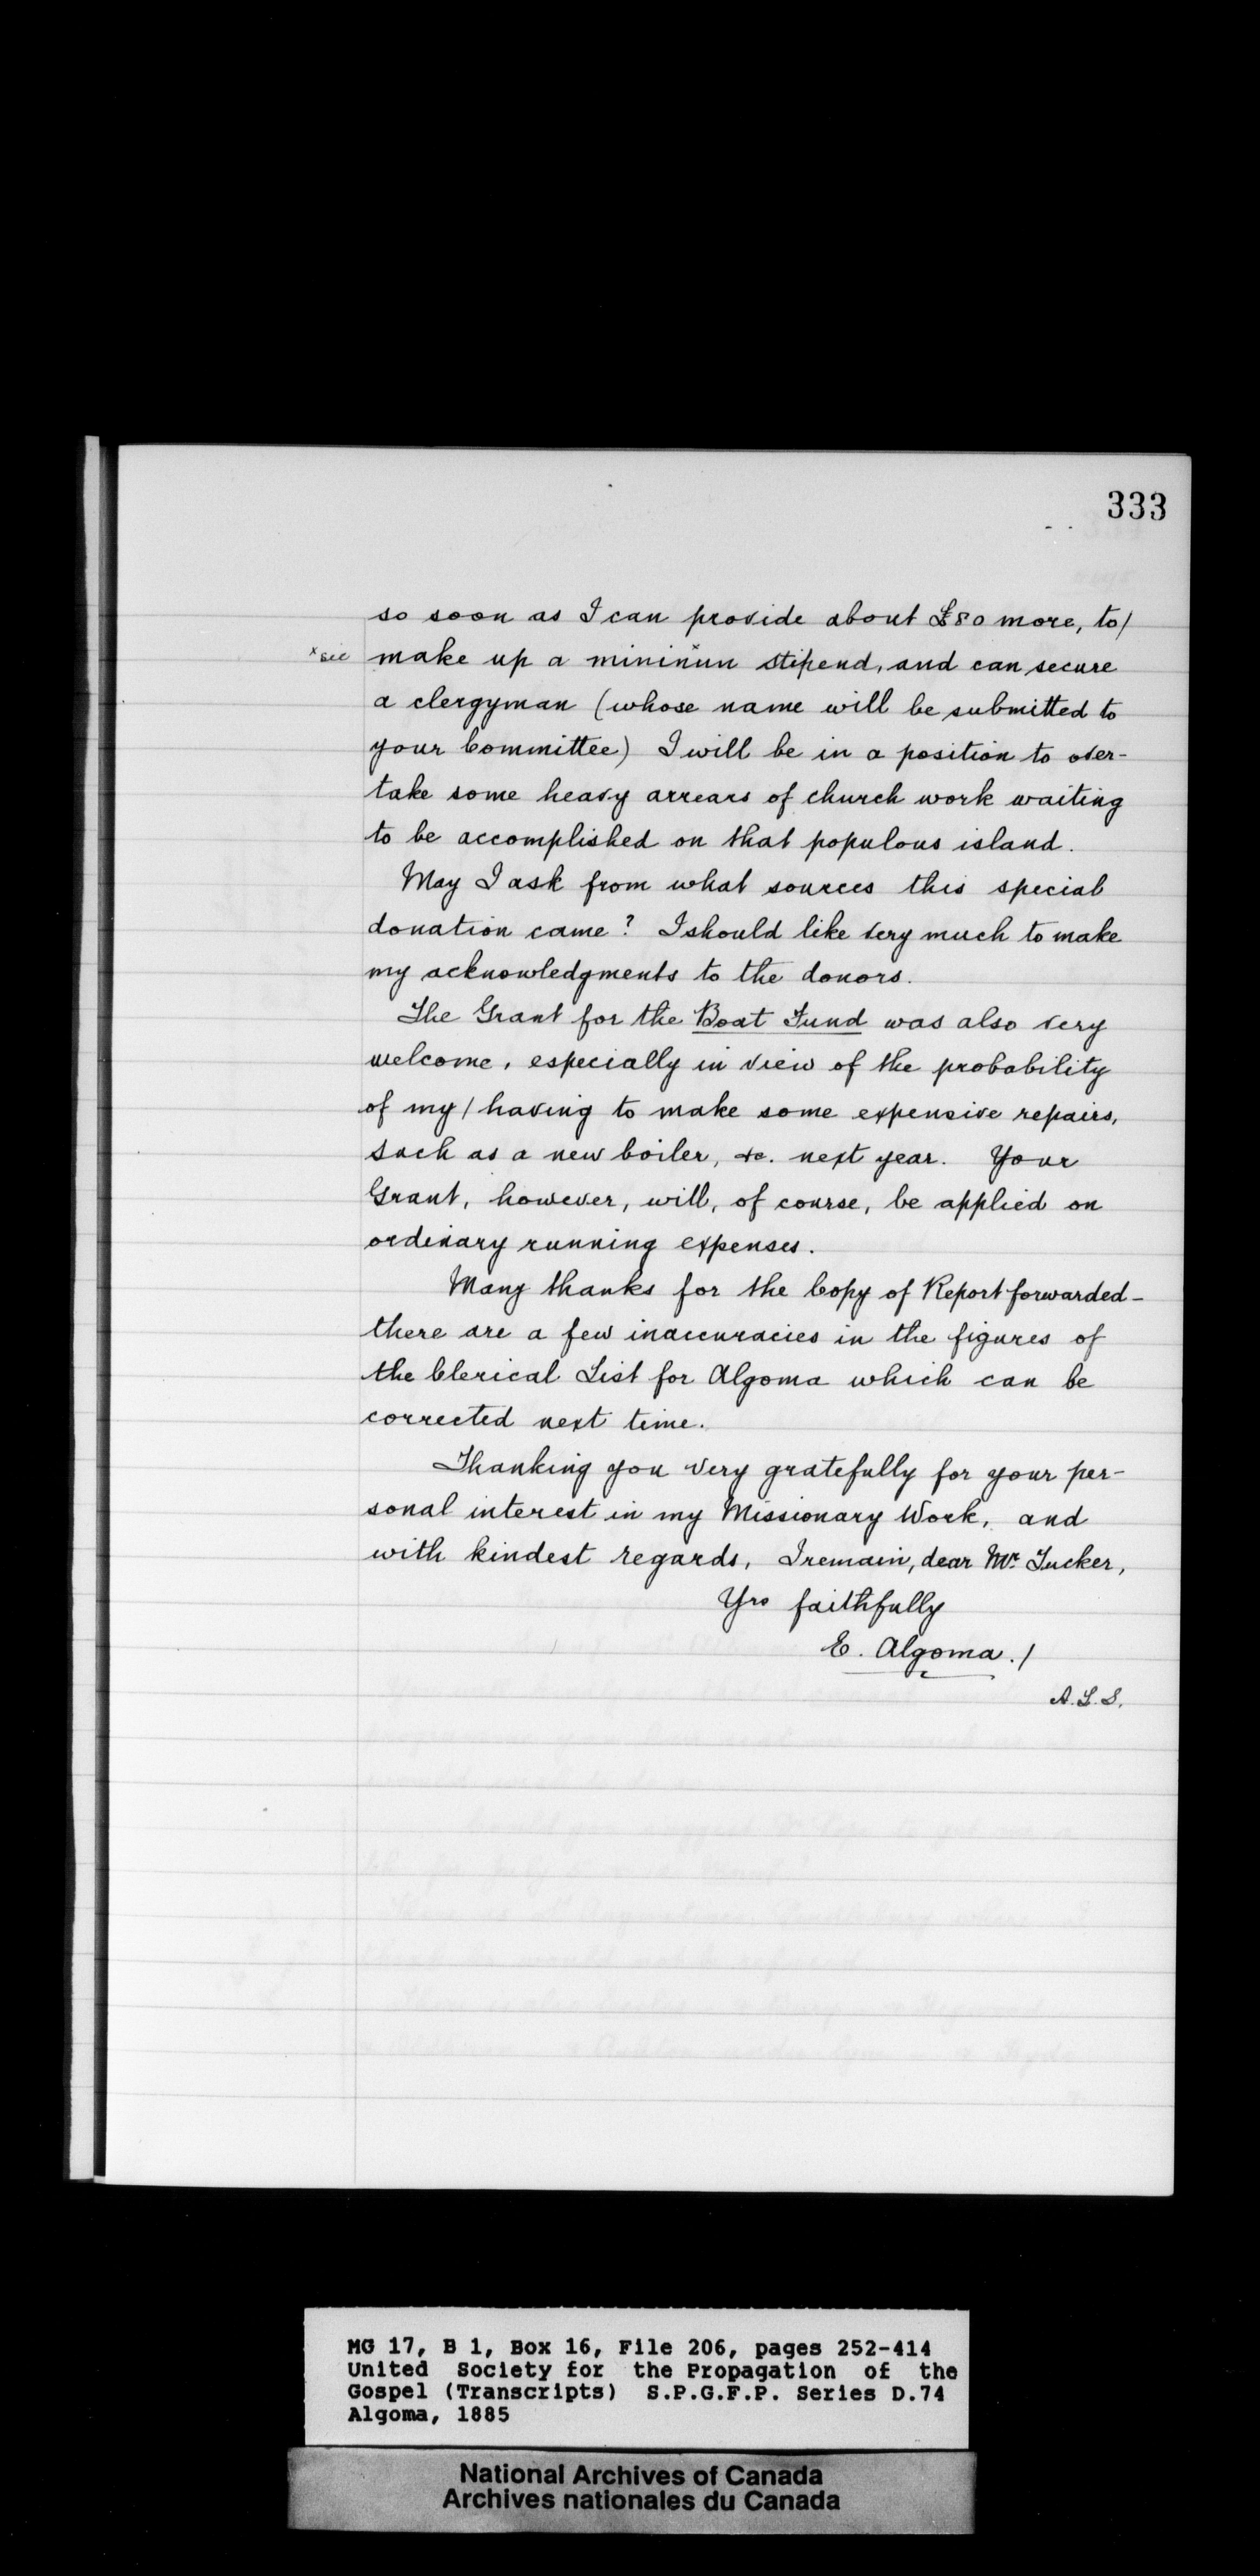 333
so soon as I can provide about £80 more, to/
x sic make up a mininun stipend, and can secure
a clergyman (whose name will be submitted to
your Committee) I will be in a position to over-
take some heavy arrears of church work waiting
to be accomplished on that populous island.
May I ask from what sources this special
donation came? I should like very much to make
my acknowledgments to the donors.
The Grant for the Boat Fund was also very
welcome, especially in view of the probability
of my / having to make some expensive repairs,
such as a new boiler, &c. next year. Your
Grant, however, will, of course, be applied on
ordinary running expenses.
Many thanks for the Copy of Report forwarded-
there are a few inaccuracies in the figures of
the Clerical List for Algoma which can be
corrected next time.
Thanking you very gratefully for your per-
sonal interest in my Missionary Work, and
with kindest regards, I remain, dear Mr. Tucker,
Yrs faithfully
E. Algoma./
A.L.S.
MG 17, B 1, Box 16, File 206, pages 252-414
United Society for the Propagation of the
Gospel (Transcripts) S.P.G.F.P. Series D.74
Algoma, 1885
National Archives of Canada
Archives nationales du Canada